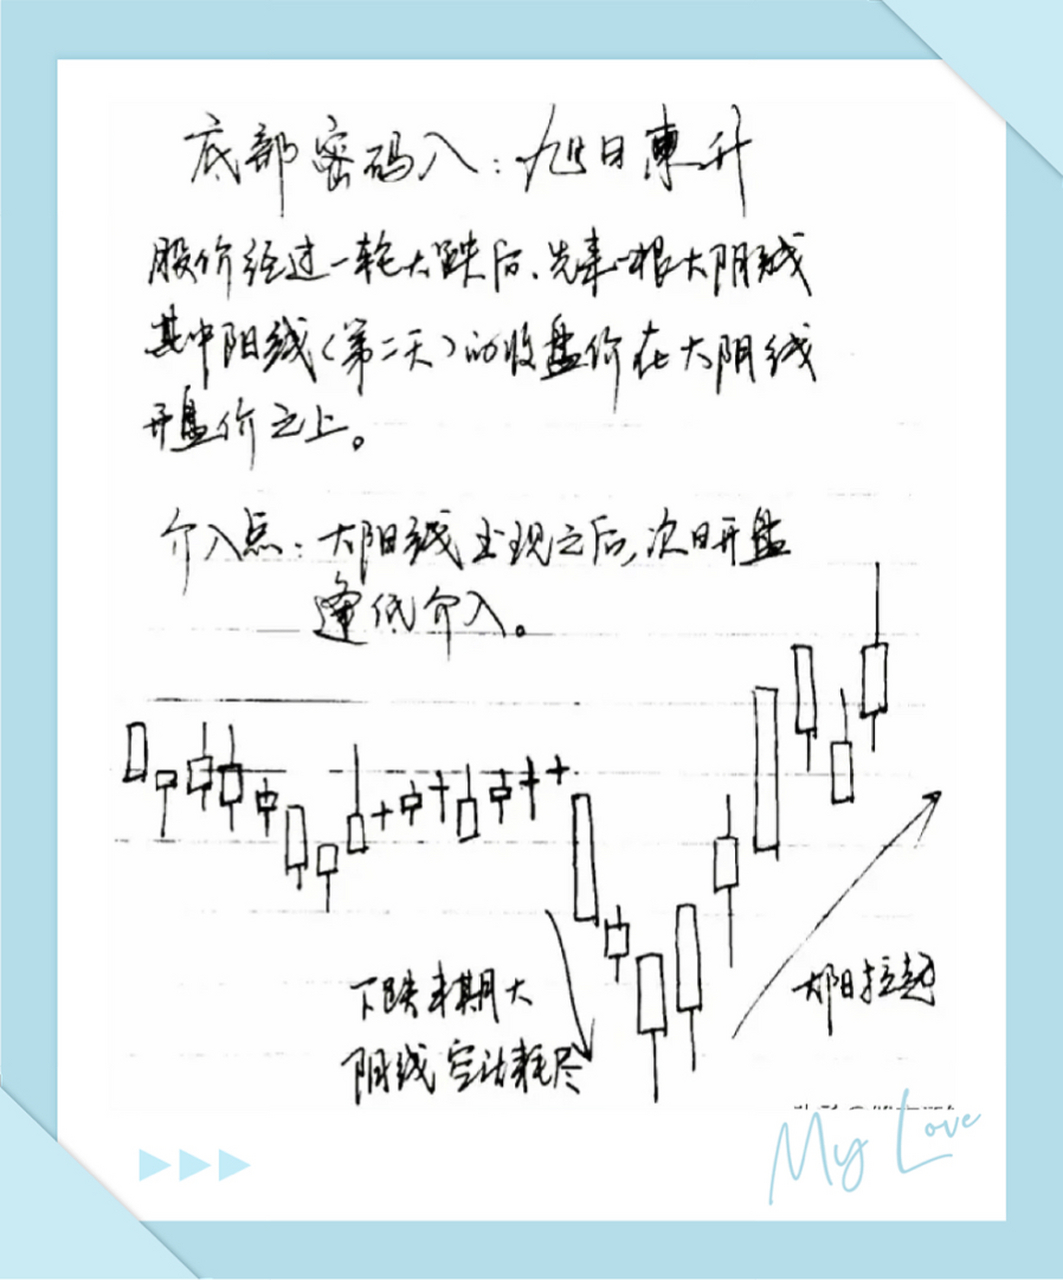 底部密码八：旭日東升
股价经过一轮大跌后、先来一根大阴线
其中阳线(第二天)的收盘价在大阴线
开盘价之上。
介入点：大阳线出现之后,次日开盘
逢低介入。
下跌末期大
阴线空方耗尽
大阳拉起
My Love